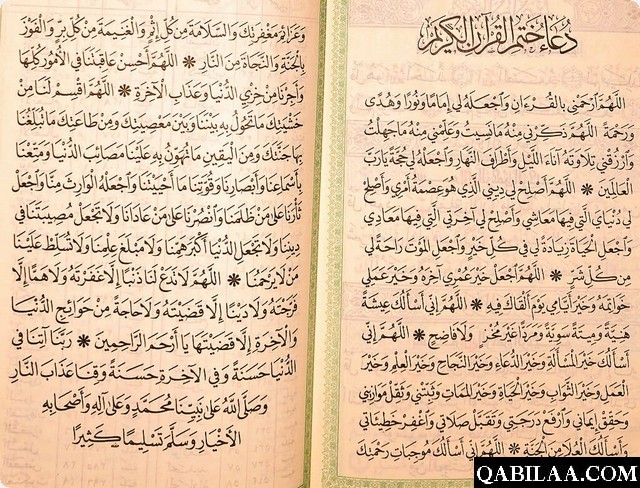 دُعَاءُ خَتْمِ القُرْآنِ الكَرِيمِ
اللَّهُمَّ ارْحَمْنِي بِالقُرْءَانِ وَاجْعَلْهُ لِي إِمَامًا وَنُورًا وَهُدًى
وَرَحْمَةً اللَّهُمَّ ذَكِّرْنِي مِنْهُ مَا نَسِيتُ وَعَلِّمْنِي مِنْهُ مَا جَهِلْتُ
وَارْزُقْنِي تِلَاوَتَهُ آنَاءَ اللَّيْلِ وَأَطْرَافَ النَّهَارِ وَاجْعَلْهُ لِي حُجَّةً يَارَبَّ
العَالَمِينَ ❋ اللَّهُمَّ أَصْلِحْ لِي دِينِي الَّذِي هُوَ عِصْمَةُ أَمْرِي وَأَصْلِحْ
لِي دُنْيَايَ الَّتِي فِيهَا مَعَاشِي وَأَصْلِحْ لِي آخِرَتِي الَّتِي فِيهَا مَعَادِي
وَاجْعَلِ الحَيَاةَ زِيَادَةً لِي فِي كُلِّ خَيْرٍ وَاجْعَلِ المَوْتَ رَاحَةً لِي
مِنْ كُلِّ شَرٍّ ❋ اللَّهُمَّ اجْعَلْ خَيْرَ عُمْرِي آخِرَهُ وَخَيْرَ عَمَلِي
خَوَاتِمَهُ وَخَيْرَ أَيَّامِي يَوْمَ أَلْقَاكَ فِيهِ ❋ اللَّهُمَّ إِنِّي أَسْأَلُكَ عِيشَةً
هَنِيَّةً وَمِيتَةً سَوِيَّةً وَمَرَدًّا غَيْرَ مُخْزٍ وَلَا فَاضِحٍ ❋ اللَّهُمَّ إِنِّي
أَسْأَلُكَ خَيْرَ المَسْأَلَةِ وَخَيْرَ الدُّعَاءِ وَخَيْرَ النَّجَاحِ وَخَيْرَ العِلْمِ وَخَيْرَ
العَمَلِ وَخَيْرَ الثَّوَابِ وَخَيْرَ الحَيَاةِ وَخَيْرَ المَمَاتِ وَثَبِّتْنِي وَثَقِّلْ مَوَازِينِي
وَحَقِّقْ إِيمَانِي وَارْفَعْ دَرَجَتِي وَتَقَبَّلْ صَلَاتِي وَاغْفِرْ خَطِيئَاتِي
وَأَسْأَلُكَ العُلَا مِنَ الجَنَّةِ ❋ اللَّهُمَّ إِنِّي أَسْأَلُكَ مُوجِبَاتِ رَحْمَتِكَ
وَعَزَائِمَ مَغْفِرَتِكَ وَالسَّلَامَةَ مِنْ كُلِّ إِثْمٍ وَالغَنِيمَةَ مِنْ كُلِّ بِرٍّ وَالفَوْزَ
بِالْجَنَّةِ وَالنَّجَاةَ مِنَ النَّارِ ❋ اللَّهُمَّ أَحْسِنْ عَاقِبَتَنَا فِي الأُمُورِ كُلِّهَا
وَأَجِرْنَا مِنْ خِزْيِ الدُّنْيَا وَعَذَابِ الآخِرَةِ ❋ اللَّهُمَّ اقْسِمْ لَنَا مِنْ
خَشْيَتِكَ مَا تَحُولُ بِهِ بَيْنَنَا وَبَيْنَ مَعْصِيَتِكَ وَمِنْ طَاعَتِكَ مَا تُبَلِّغُنَا
بِهَا جَنَّتَكَ وَمِنَ اليَقِينِ مَا تُهَوِّنُ بِهِ عَلَيْنَا مَصَائِبَ الدُّنْيَا وَمَتِّعْنَا
بِأَسْمَاعِنَا وَأَبْصَارِنَا وَقُوَّتِنَا مَا أَحْيَيْتَنَا وَاجْعَلْهُ الوَارِثَ مِنَّا وَاجْعَلْ
ثَأْرَنَا عَلَى مَنْ ظَلَمَنَا وَانْصُرْنَا عَلَى مَنْ عَادَانَا وَلَا تَجْعَلْ مُصِيبَتَنَا فِي
دِينِنَا وَلَا تَجْعَلِ الدُّنْيَا أَكْبَرَ هَمِّنَا وَلَا مَبْلَغَ عِلْمِنَا وَلَا تُسَلِّطْ عَلَيْنَا
مَنْ لَا يَرْحَمُنَا ❋ اللَّهُمَّ لَا تَدَعْ لَنَا ذَنْبًا إِلَّا غَفَرْتَهُ وَلَا هَمًّا إِلَّا
فَرَّجْتَهُ وَلَا دَيْنًا إِلَّا قَضَيْتَهُ وَلَا حَاجَةً مِنْ حَوَائِجِ الدُّنْيَا
وَالآخِرَةِ إِلَّا قَضَيْتَهَا يَا أَرْحَمَ الرَّاحِمِينَ ❋ رَبَّنَا آتِنَا فِي
الدُّنْيَا حَسَنَةً وَفِي الآخِرَةِ حَسَنَةً وَقِنَا عَذَابَ النَّارِ
وَصَلَّى اللَّهُ عَلَى نَبِيِّنَا مُحَمَّدٍ وَعَلَى آلِهِ وَأَصْحَابِهِ
الأَخْيَارِ وَسَلَّمَ تَسْلِيمًا كَثِيرًا
QABILAA.COM